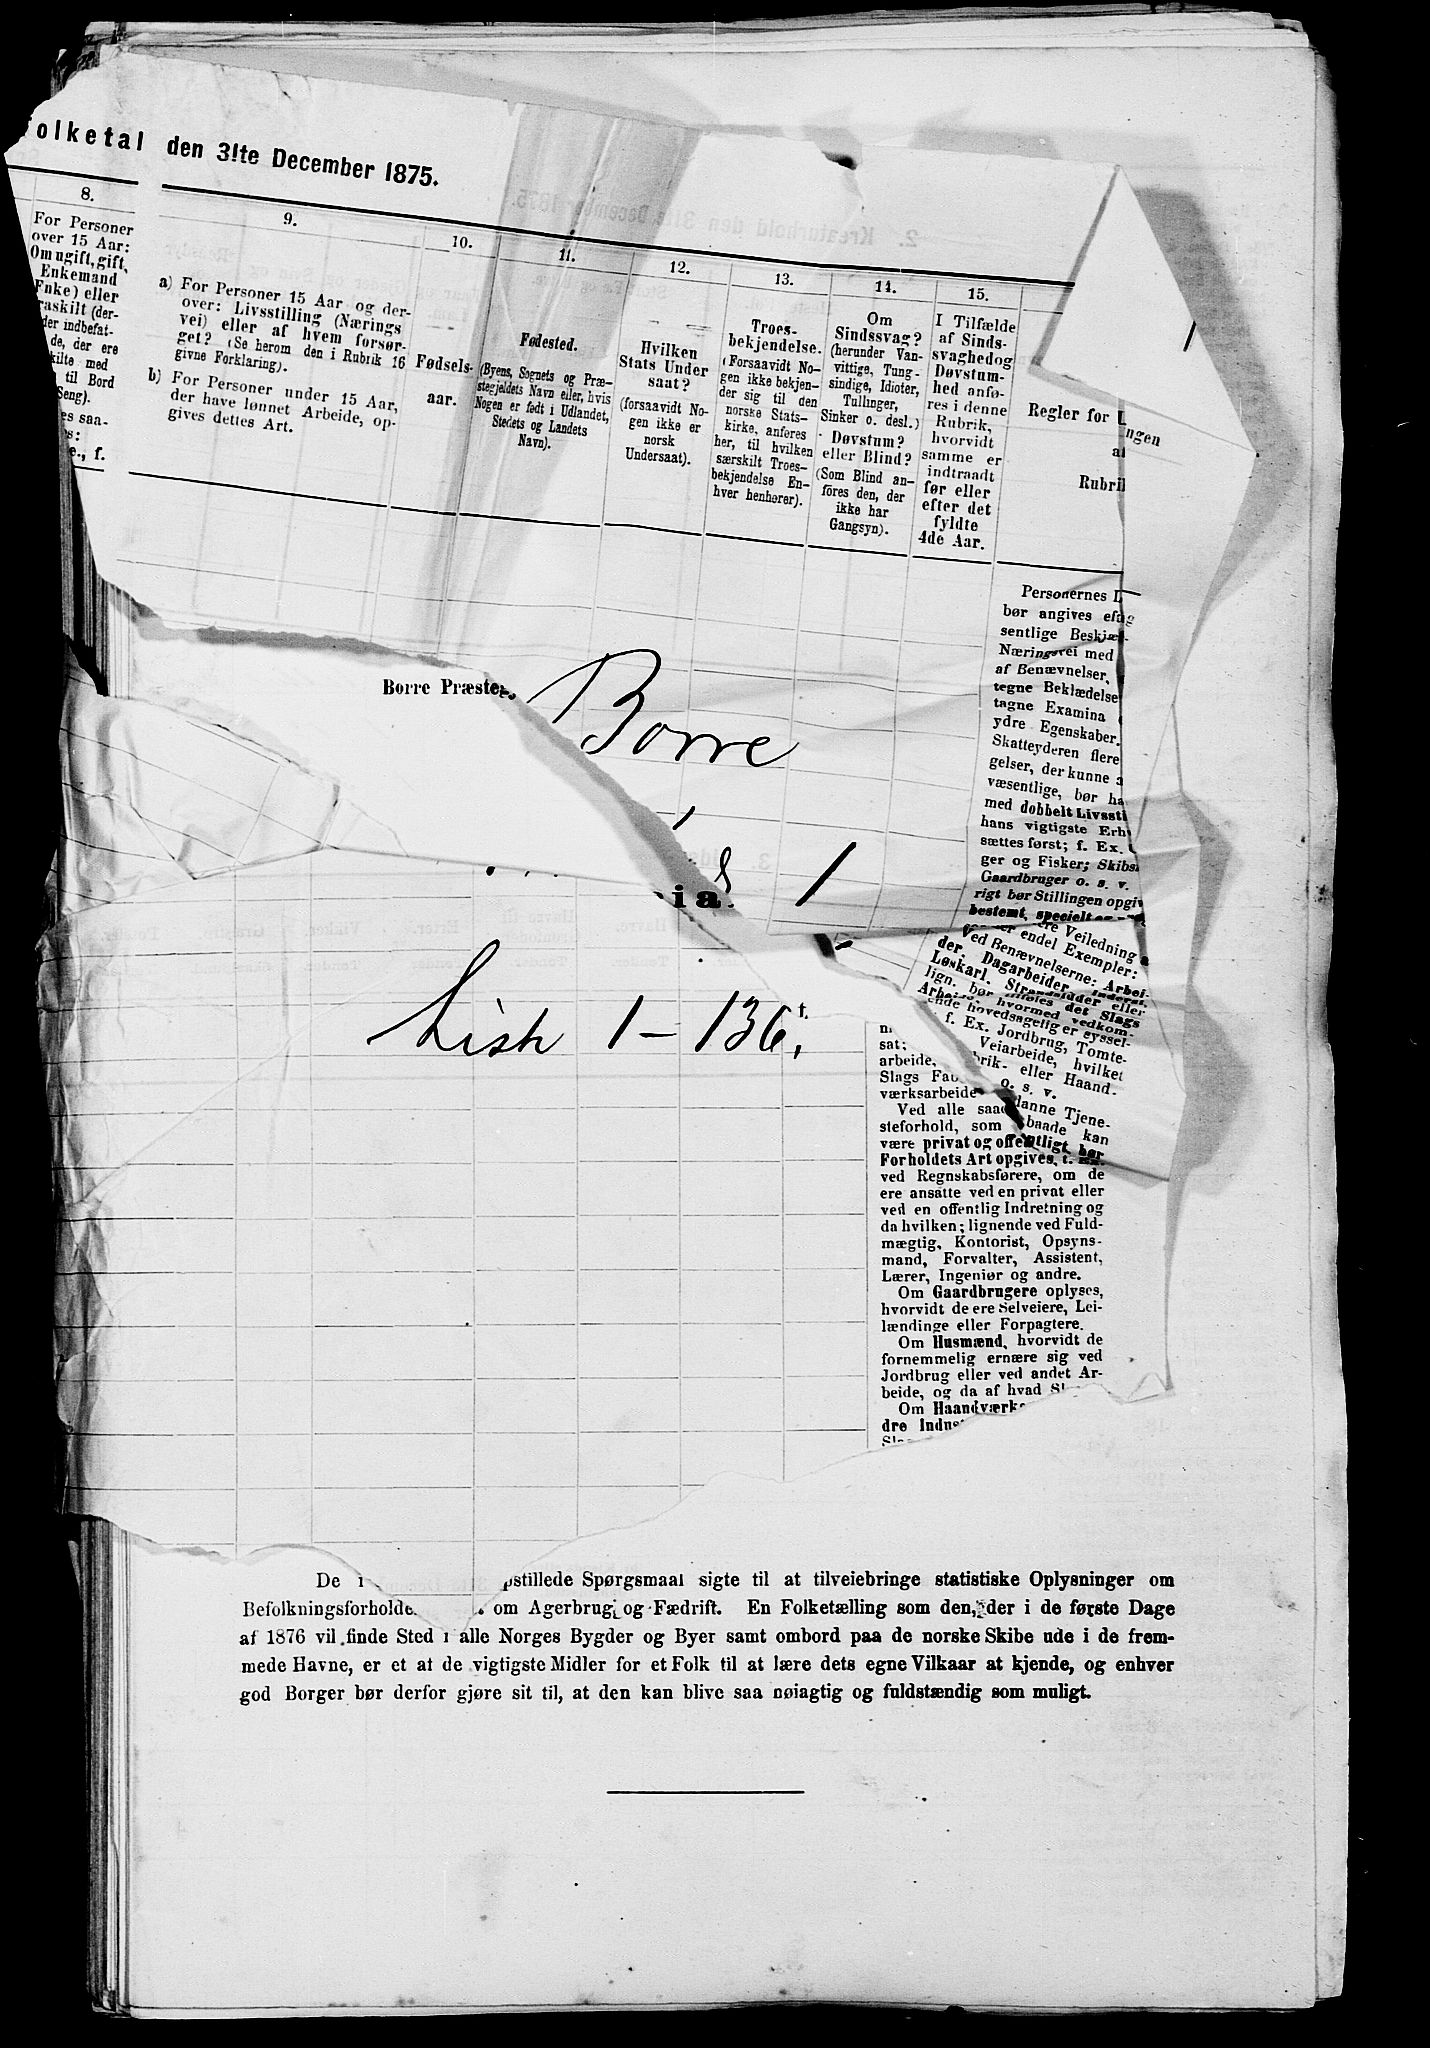 Folketal den 31te December 1875.
8.
For Personer
over 15 Aar:
Om ugift, gift,
Enkemand
Enke) eller
raskilt (der-
der indbefat-
de, der ere
kilte med
til Bord
Seng).
es saa-
s:
e., f.
9.
a) For Personer 15 Aar og der-
over: Livsstilling (Nærings
vei) eller af hvem forsør-
get? (Se herom den i Rubrik 16
givne Forklaring).
b) For Personer under 15 Aar,
der have lønnet Arbeide, op-
gives dettes Art.
10.
Fødsels-
aar.
11.
Fødested.
(Byens, Sognets og Præ-
stegjeldets Navn eller, hvis
Nogen er født i Udlandet,
Stedets og Landets
Navn).
12.
Hvilken
Stats Under
saat?
(forsaavidt No-
gen ikke er
norsk
Undersaat).
13.
Troes-
bekjendelse.
(Forsaavidt No-
gen ikke bekjen-
der sig til den
norske Stats-
kirke, anføres
her, til hvilken
særskilt Troes-
bekjendelse En-
hver henhører).
14.
Om
Sindssvag?
(herunder Van-
vittige, Tung-
sindige, Idioter,
Tullinger,
Sinker o. desl.)
Døvstum?
eller Blind?
(Som Blind an-
føres den, der
ikke har
Gangsyn).
15.
I Tilfælde
af Sinds-
svaghedog
Døvstum-
hed anfø-
res i denne
Rubrik,
hvorvidt
samme er
indtraadt
før eller
efter det
fyldte
4de Aar.
Regler for
ngen
af
Rubrik
Personernes
bør angives
sentlige Beskjæ-
Næringsvei med
af Benævnelser,
tegne Beklædelse
tagne Examina
ydre Egenskaber.
Skatteyderen flere
gelser, der kunne
væsentlige, bør ha
med dobbelt Livssti
hans vigtigste Erh
sættes først; f. Ex.
ger og Fisker; Skibs
Gaardbruger o. s. v.
rigt bør Stillingen opgiv
bestemt, specielt og
re Veiledning
er endel Exempler:
Ved Benævnelserne: Arbei-
der, Dagarbeider, Inderst,
Løskarl, Strandsidder eller
lign. bør tilføies det Slags
Arbe
hvormed vedkom-
ende hovedsagelig er syssel-
sat; f. Ex. Jordbrug, Tomte-
arbeide, Veiarbeide, hvilket
Slags Fabrik- eller Haand-
værksarbeide o. s. v.
Ved alle saadanne Tjene-
steforhold, som baade kan
være privat og offentligt, bør
Forholdets Art opgives, f. Ex.
ved Regnskabsførere, om de
ere ansatte ved en privat eller
ved en offentlig Indretning og
da hvilken; lignende ved Fuld-
mægtig, Kontorist, Opsyns-
mand, Forvalter, Assistent,
Lærer, Ingeniør og andre.
Om Gaardbrugere oplyses,
hvorvidt de ere Selveiere, Lei-
lændinge eller Forpagtere.
Om Husmænd, hvorvidt de
fornemmelig ernære sig ved
Jordbrug eller ved andet Ar-
beide, og da af hvad Sl
Om Haandværks
dre Indus
Borre Præsteg
Borre
1
Liste 1 - 136,
De i opstillede Spørgsmaal sigte til at tilveiebringe statistiske Oplysninger om
Befolkningsforholde om Agerbrug og Fædrift. En Folketælling som den, der i de første Dage
af 1876 vil finde Sted i alle Norges Bygder og Byer samt ombord paa de norske Skibe ude i de frem-
mede Havne, er et at de vigtigste Midler for et Folk til at lære dets egne Vilkaar at kjende, og enhver
god Borger bør derfor gjøre sit til, at den kan blive saa nøiagtig og fuldstændig som muligt.